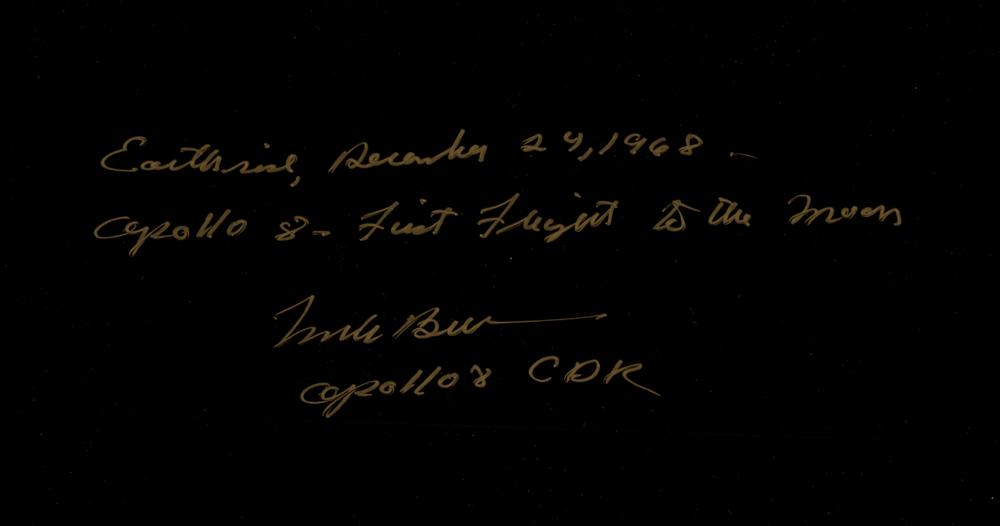 Earthrise, December 24, 1968 -
Apollo 8 - First Flight to the Moon
Frank Borman
Apollo 8 CDR